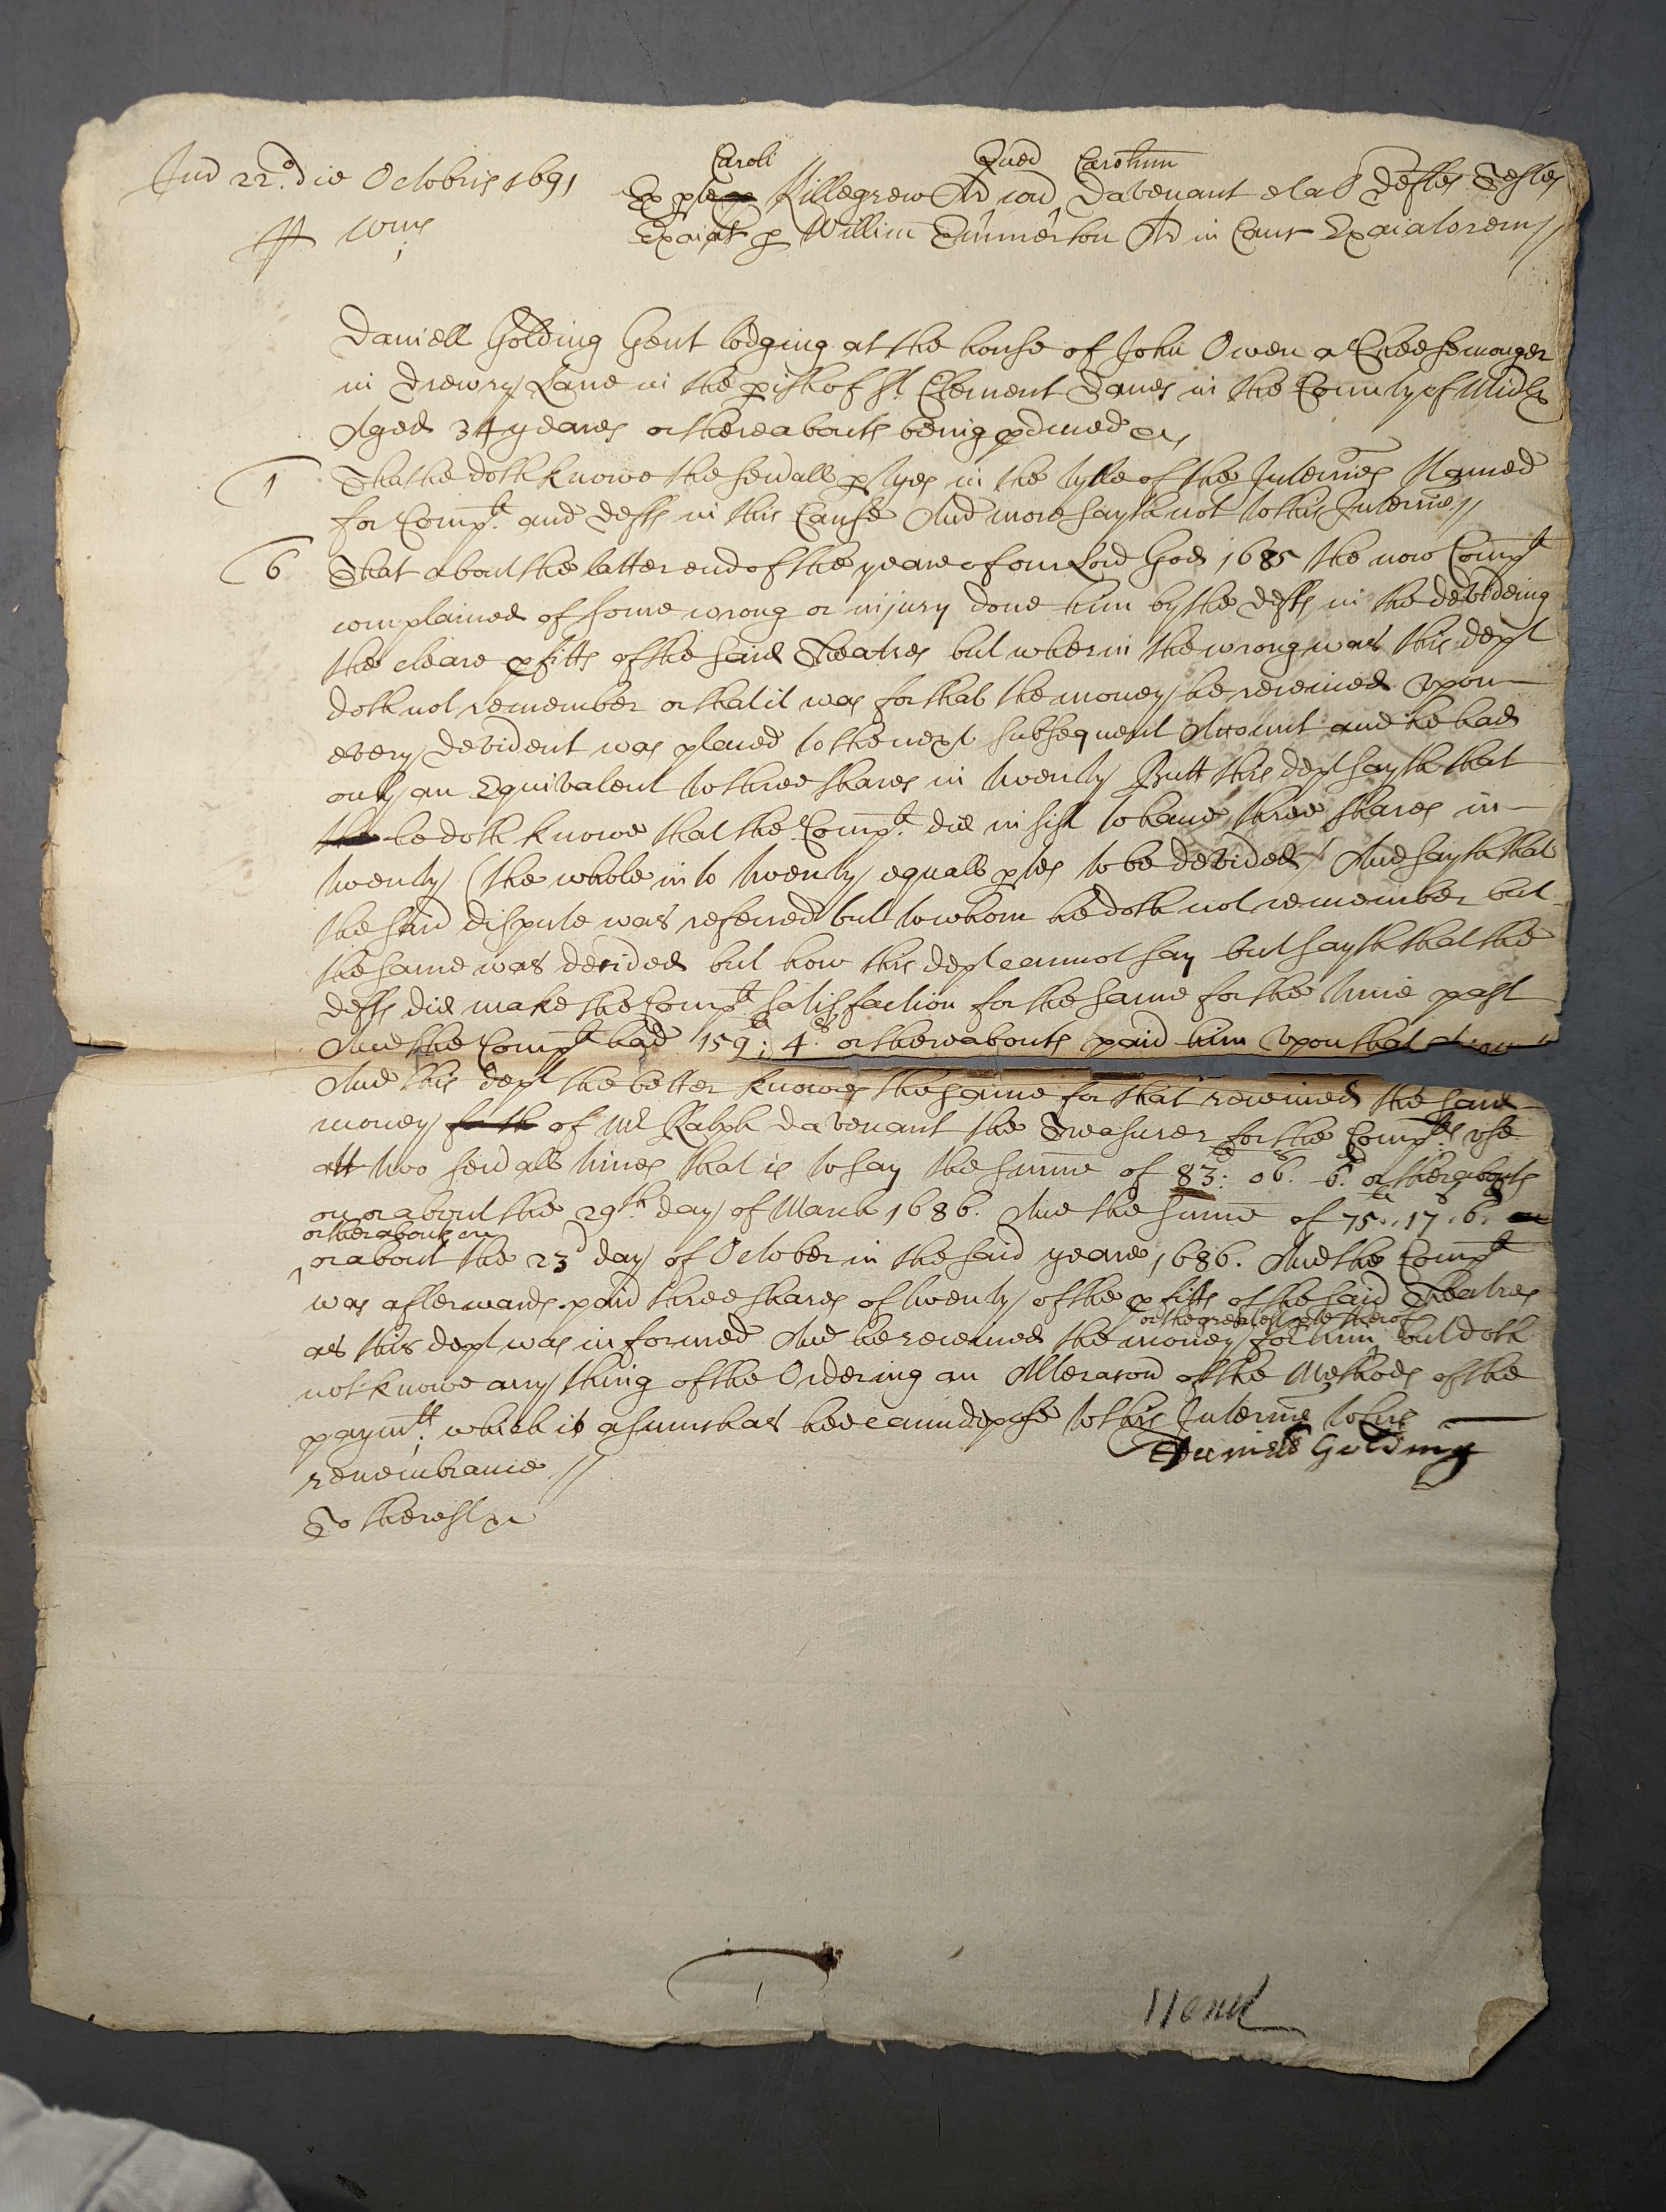 Jur 22.o die Octobris 1691
Caroli Quer Carolum
Ex pte Killegrew Ar con Davenant et al Defles Testes
Exaiat p Willim Emmerton Ar in Canc Exaiatorem //
Daniell Golding Gent lodging at the house of John Owen a Cheesemonger
in Drewry Lane in the pish of St. Clement Danes in the County of Midlx
Aged 34 yeares or thereabouts being pduced &c
1 That he doth knowe the sevall ptyes in the tytle of the Interries Named
for Compt. and Defts in this Cause And more sayth not to this Interrie //
6 That about the latter end of the yeare of our Lord God 1685 the now Compt
complained of some wrong or injury done him by the Defts in the devideing
the cleare pfitts of the said Theatres but wherin the wrong was this dept
doth not remember or that it was for that the money he received upon
every devident was placed to the next subsequent Account and he had
only an Equivalent to three shares in twenty Butt this dept sayth that
the he doth knowe that the Compt. did insist to have three shares in
twenty (the whole into twenty equall ptes to be devided) And sayth that
the said dispute was referred but to whom he doth not remember but
the same was decided but how this dept cannot say but sayth that the
Defts did make the Compt satisfaction for the same for the time past
And the Compt had 159li: 4s. or thereabouts paid him upon that
And this dept the better knowes the same for that received the said
money for th of Mr Ralph Davenant the Treasurer for the Compts use
att two sevall times that is to say the summe of 83li: 06s. 6d. or therabouts
on or about the 29th. day of March 1686. And the summe of 75li..17s.6d.
or therabouts on
or about the 23d day of October in the said yeare 1686. And the Compt
was afterwards paid three shares of twenty of the pfitts of the said Theatres
or the greatest pte therof
as this dept was informed And he received the money for him but doth
not knowe any thing of the Ordering an Alteracon of the Methods of the
paymts. which is asmuch as hee cann depose to this Interrie to his
remembrance //
Daniell Golding
To the rest &c